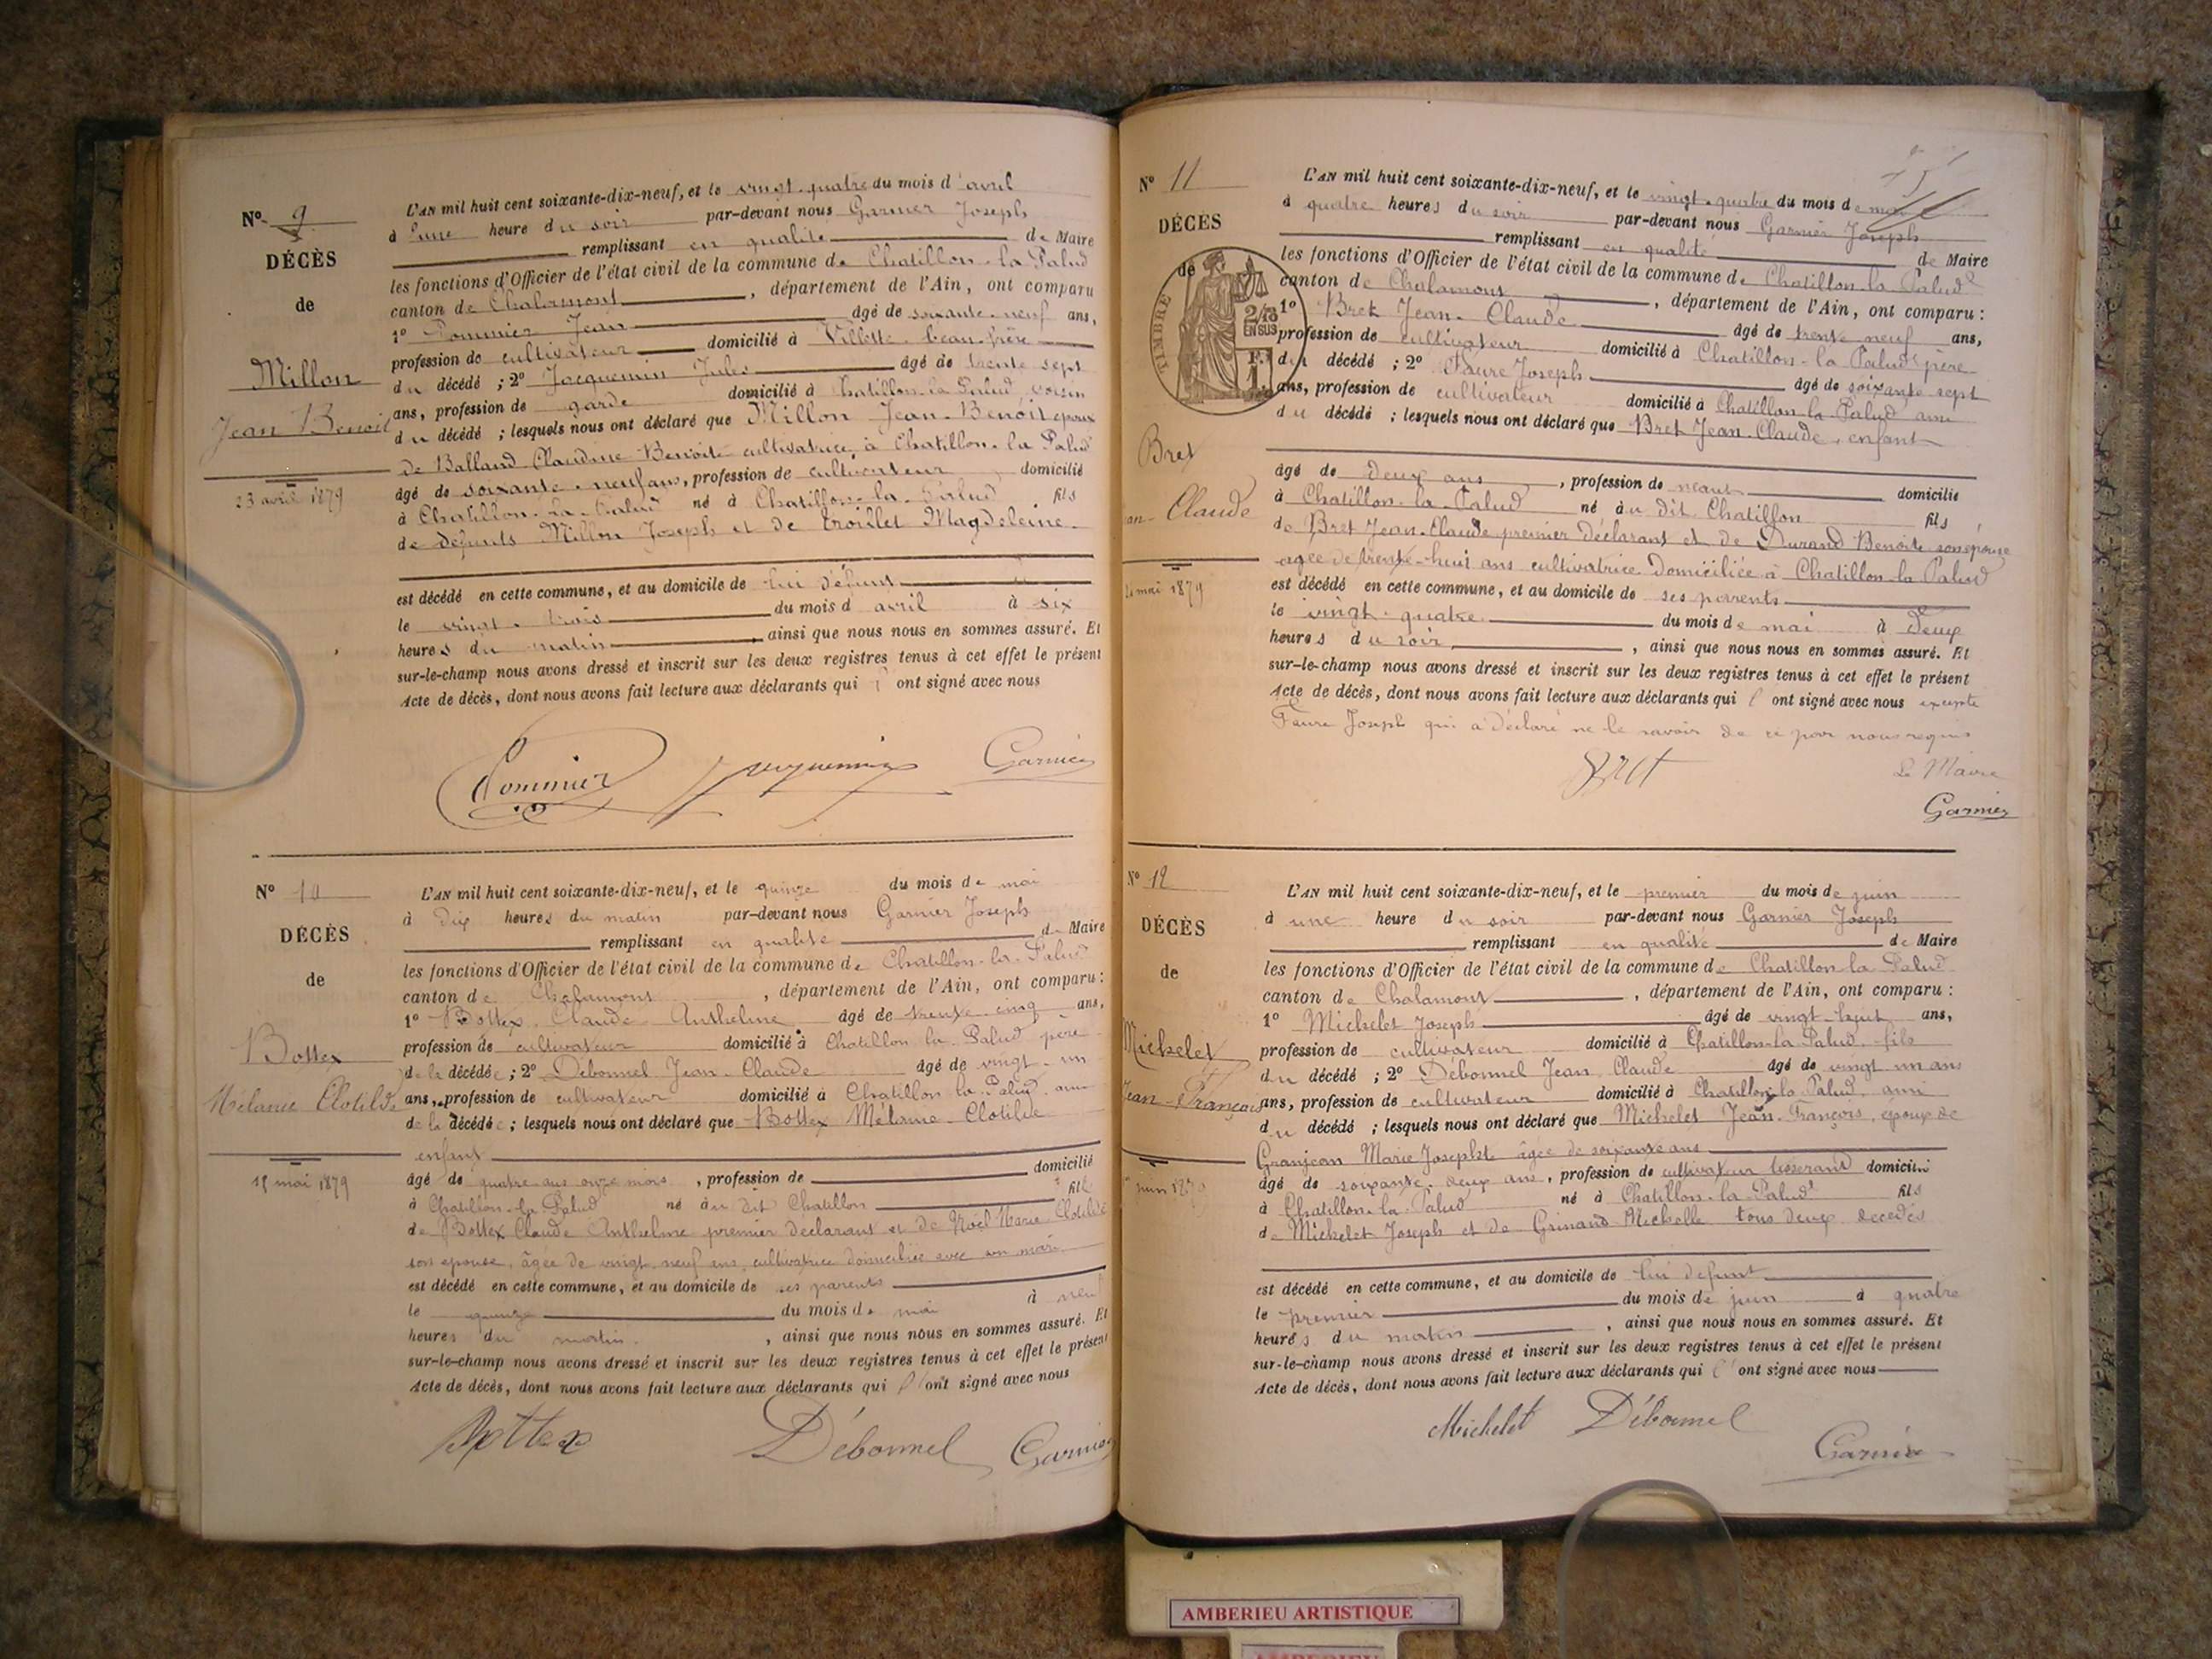 N° 9
DÉCÈS
de
Millon
Jean Benoit
23 avril 1879
L'AN mil huit cent soixante-dix-neuf, et le vingt-quatre du mois d'avril
à une heure du soir par-devant nous Garnier Joseph
remplissant en qualité de Maire
les fonctions d'Officier de l'état civil de la commune de Chatillon-la-Palud
canton de Chalamont, département de l'Ain, ont comparu
1° Pommier Jean âgé de soixante-neuf ans,
profession de cultivateur domicilié à Villette beau-frère
du décédé ; 2° Jacquemin Jules âgé de trente sept
ans, profession de garde domicilié à Chatillon-la-Palud, voisin
du décédé ; lesquels nous ont déclaré que Millon Jean-Benoit époux
de Balland Claudine Benoite cultivatrice à Chatillon-la-Palud
âgé de soixante-neuf ans, profession de cultivateur domicilié
à Chatillon-la-Palud né à Chatillon-la-Palud fils
de défunts Millon Joseph et de Troillet Magdeleine
est décédé en cette commune, et au domicile de lui défunt
le vingt-trois du mois d avril à six
heures du matin, ainsi que nous nous en sommes assuré. Et
sur-le-champ nous avons dressé et inscrit sur les deux registres tenus à cet effet le présent
Acte de décès, dont nous avons fait lecture aux déclarants qui l'ont signé avec nous
Pommier Jacquemin Garnier
N° 10
DÉCÈS
de
Bottex
Mélanie Clotilde
15 mai 1879
L'AN mil huit cent soixante-dix-neuf, et le quinze du mois de mai
à dix heures du matin par-devant nous Garnier Joseph
remplissant en qualité de Maire
les fonctions d'Officier de l'état civil de la commune de Chatillon-la-Palud
canton de Chalamont, département de l'Ain, ont comparu :
1° Bottex Claude Anthelme âgé de trente cinq ans,
profession de cultivateur domicilié à Chatillon la Palud père
de la décédée ; 2° Débonnel Jean-Claude âgé de vingt-un
ans, profession de cultivateur domicilié à Chatillon la Palud ami
de la décédée ; lesquels nous ont déclaré que Bottex Mélanie-Clotilde
enfant
âgé de quatre ans onze mois, profession de domicilié
à Chatillon-la-Palud né au dit Chatillon fille
de Bottex Claude Anthelme premier déclarant et de Noël Marie Clotilde
son épouse, âgée de vingt neuf ans, cultivatrice domiciliée avec son mari
est décédé en cette commune, et au domicile de ses parents
le quinze du mois de mai à neuf
heures du matin, ainsi que nous nous en sommes assuré. Et
sur-le-champ nous avons dressé et inscrit sur les deux registres tenus à cet effet le présent
Acte de décès, dont nous avons fait lecture aux déclarants qui l'ont signé avec nous
Bottex Débonnel Garnier
N° 11
DÉCÈS
de
TIMBRE
2/10
EN SUS
Bret
Claude
mai 1879
L'AN mil huit cent soixante-dix-neuf, et le vingt-quatre du mois de mai
à quatre heures du soir par-devant nous Garnier Joseph
remplissant en qualité de Maire
les fonctions d'Officier de l'état civil de la commune de Chatillon-la-Palud
canton de Chalamont, département de l'Ain, ont comparu :
1° Bret Jean-Claude âgé de trente neuf ans,
profession de cultivateur domicilié à Chatillon-la-Palud père
du décédé ; 2° Faure Joseph âgé de soixante sept
ans, profession de cultivateur domicilié à Chatillon-la-Palud ami
du décédé ; lesquels nous ont déclaré que Bret Jean-Claude, enfant
âgé de deux ans, profession de néant domicilié
à Chatillon-la-Palud né au dit Chatillon fils
de Bret Jean-Claude premier déclarant et de Durand Benoite son épouse
agée de trente-huit ans cultivatrice domiciliée à Chatillon-la-Palud
est décédé en cette commune, et au domicile de ses parents
le vingt-quatre du mois de mai à deux
heures du soir, ainsi que nous nous en sommes assuré. Et
sur-le-champ nous avons dressé et inscrit sur les deux registres tenus à cet effet le présent
Acte de décès, dont nous avons fait lecture aux déclarants qui l'ont signé avec nous excepté
Faure Joseph qui a déclaré ne le savoir de ce par nous requis
Bret Le Maire
Garnier
N° 12
DÉCÈS
de
Michelet
Jean-François
juin 1879
L'AN mil huit cent soixante-dix-neuf, et le premier du mois de juin
à une heure du soir par-devant nous Garnier Joseph
remplissant en qualité de Maire
les fonctions d'Officier de l'état civil de la commune de Chatillon-la-Palud
canton de Chalamont, département de l'Ain, ont comparu :
1° Michelet Joseph âgé de vingt-huit ans,
profession de cultivateur domicilié à Chatillon-la-Palud fils
du décédé ; 2° Débonnel Jean Claude âgé de vingt un ans
ans, profession de cultivateur domicilié à Chatillon-la-Palud, ami
du décédé ; lesquels nous ont déclaré que Michelet Jean-François, époux de
Granjean Marie Josephte âgée de soixante ans
âgé de soixante-deux ans, profession de cultivateur tisserand domicilié
à Chatillon-la-Palud né à Chatillon-la-Palud fils
de Michelet Joseph et de Grinand Michelle tous deux décédés
est décédé en cette commune, et au domicile de lui défunt
le premier du mois de juin à quatre
heures du matin, ainsi que nous nous en sommes assuré. Et
sur-le-champ nous avons dressé et inscrit sur les deux registres tenus à cet effet le présent
Acte de décès, dont nous avons fait lecture aux déclarants qui l'ont signé avec nous
Michelet Débonnel
Garnier
AMBERIEU ARTISTIQUE
AMBERIEU